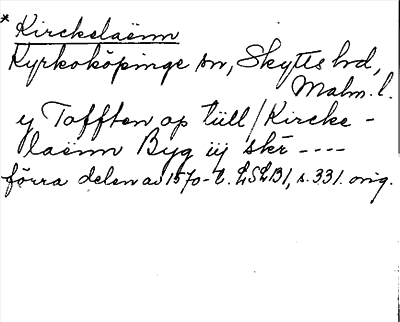 * Kirckelaënn
Kyrkoköpinge sn, Skytts hd,
Malm. l.
y Tofften op tüll / Kircke-
laënn Byg iij skr ----
förra delen av 1570-t. LSLB1, s. 331. orig.